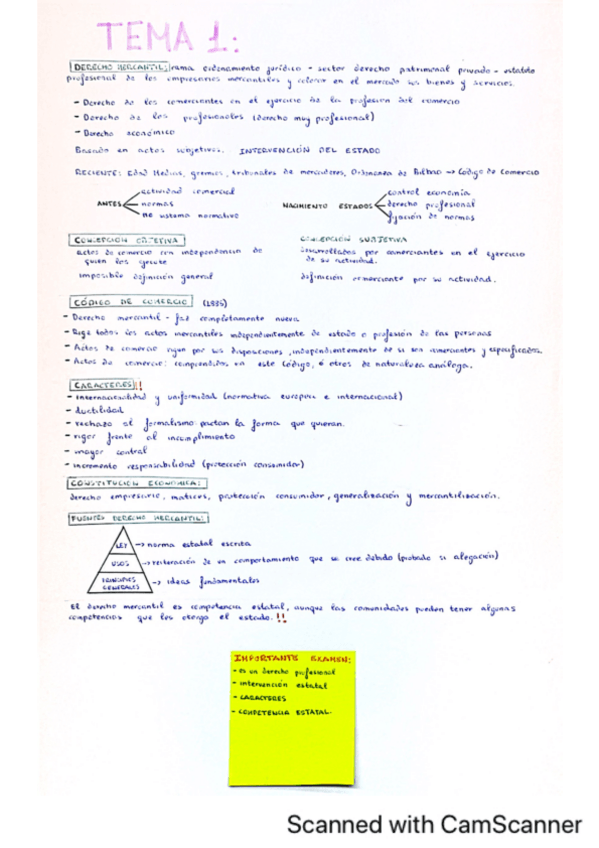 TEMA 1:
DERECHO MERCANTIL: rama ordenamiento jurídico - sector derecho patrimonial privado - estatuto
profesional de los empresarios mercantiles y colocar en el mercado sus bienes y servicios.
- Derecho de los comerciantes en el ejercicio de la profesión del comercio
- Derecho de los profesionales (derecho muy profesional)
- Derecho económico
Basado en actos subjetivos. INTERVENCIÓN DEL ESTADO
RECIENTE: Edad Media, gremios, tribunales de mercaderes, Ordenanza de Bilbao → Código de Comercio
ANTES
actividad comercial
normas
no sistema normativo
NACIMIENTO ESTADOS
control economía
derecho profesional
fijación de normas
CONCEPCIÓN OBJETIVA
actos de comercio con independencia de
quien los ejecute
imposible definición general
CONCEPCIÓN SUBJETIVA
desarrollados por comerciantes en el ejercicio
de su actividad.
definición comerciante por su actividad.
CÓDIGO DE COMERCIO (1885)
- Derecho mercantil - faz completamente nueva
- Rige todos los actos mercantiles independientemente de estado o profesión de las personas
- Actos de comercio rigen por sus disposiciones, independientemente de si son comerciantes y especificados.
- Actos de comercio: comprendidos en este Código, ó otros de naturaleza análoga.
CARACTERES!!
- internacionalidad y uniformidad (normativa europea e internacional)
- ductilidad
- rechazo al formalismo pactan la forma que quieran.
- rigor frente al incumplimiento
- mayor control
- incremento responsabilidad (protección consumidor)
CONSTITUCIÓN ECONÓMICA:
derecho empresario, matices, protección consumidor, generalización y mercantilización.
FUENTES DERECHO MERCANTIL:
LEY → norma estatal escrita
USOS → reiteración de un comportamiento que se cree debido (probado si alegación)
PRINCIPIOS GENERALES → ideas fundamentales
El derecho mercantil es competencia estatal, aunque las comunidades pueden tener algunas
competencias que les otorga el estado. !!
IMPORTANTE EXAMEN:
- es un derecho profesional
- intervención estatal
- CARACTERES
- COMPETENCIA ESTATAL.
Scanned with CamScanner